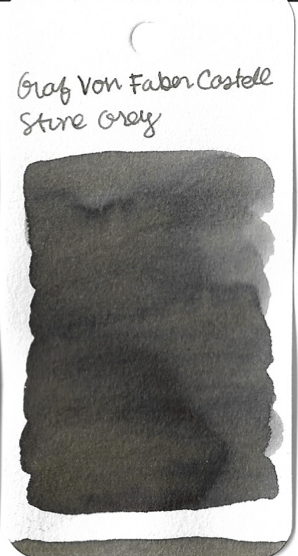 Graf Von Faber Castell
Stone Grey